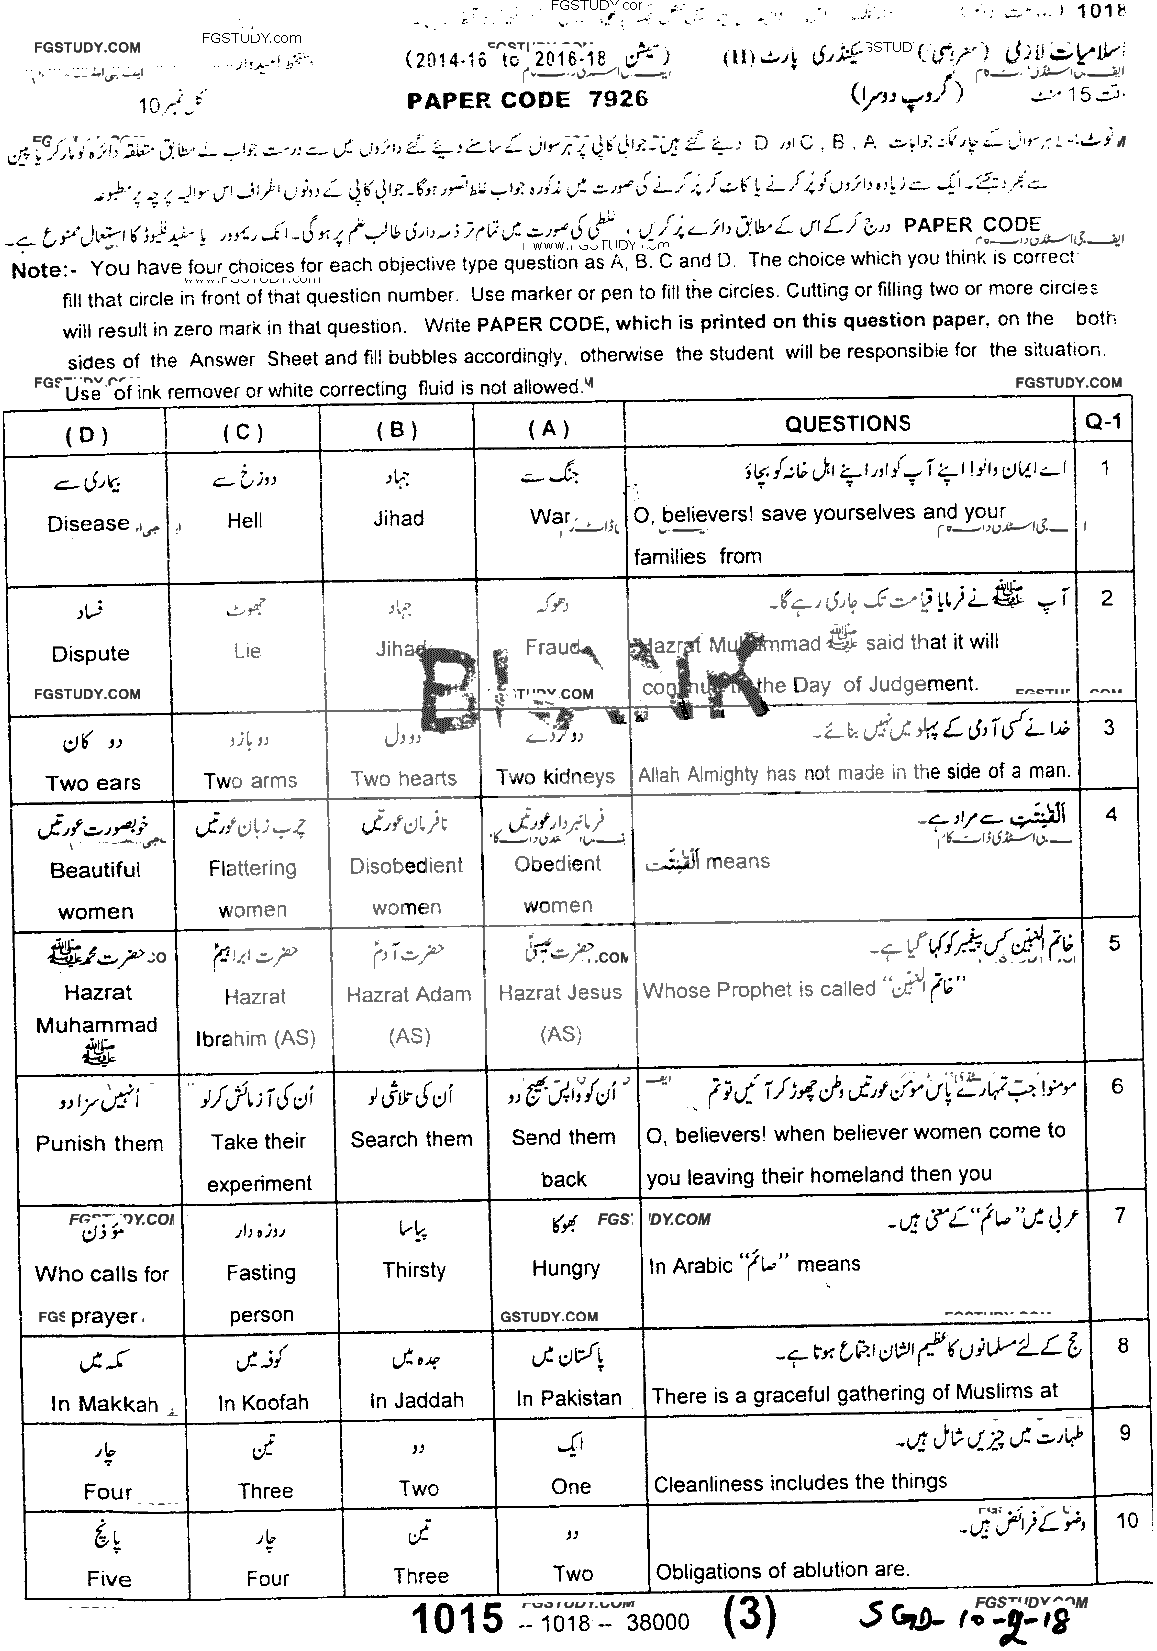 FGSTUDY.COM
1018
FGSTUDY.COM FGSTUDY.com (2014-16 to 2016-18 سیشن) اسلامیات لازمی سیکنڈری پارٹ (II)
کل نمبر 10 PAPER CODE 7926 (گروپ دوسرا) وقت 15 منٹ
نوٹ:- ہر سوال کے چار ممکنہ جوابات A , B , C اور D دیئے گئے ہیں۔ جوابی کاپی پر ہر سوال کے سامنے دیئے گئے دائروں میں سے درست جواب کے مطابق متعلقہ دائرہ کو مارکر یا پین
سے بھر دیجئے۔ ایک سے زیادہ دائروں کو پُر کرنے یا کاٹ کر پُر کرنے کی صورت میں مذکورہ جواب غلط تصور ہوگا۔ جوابی کاپی کے دونوں اطراف اس سوالیہ پرچہ پر مطبوعہ
PAPER CODE درج کر کے اس کے مطابق دائرے پُر کریں، غلطی کی صورت میں تمام تر ذمہ داری طالب علم پر ہوگی۔ انک ریموور یا سفید فلیوڈ کا استعمال ممنوع ہے۔
www.FGSTUDY.com
Note:- You have four choices for each objective type question as A, B. C and D. The choice which you think is correct
fill that circle in front of that question number. Use marker or pen to fill the circles. Cutting or filling two or more circles
will result in zero mark in that question. Write PAPER CODE, which is printed on this question paper, on the both
sides of the Answer Sheet and fill bubbles accordingly, otherwise the student will be responsible for the situation.
Use of ink remover or white correcting fluid is not allowed.
FGSTUDY.COM
( D ) ( C ) ( B ) ( A ) QUESTIONS Q-1
بیماری سے دوزخ سے جہاد جنگ سے اے ایمان والو! اپنے آپ کو اور اپنے اہل خانہ کو بچاؤ 1
Disease Hell Jihad War O, believers! save yourselves and your
families from
فساد جھوٹ جہاد دھوکہ آپ ﷺ نے فرمایا قیامت تک جاری رہے گا۔ 2
Dispute Lie Jihad Fraud Hazrat Muhammad ﷺ said that it will
FGSTUDY.COM continue till the Day of Judgement.
BLANK
دو کان دو بازو دو دل دو گردے خدا نے کسی آدمی کے پہلو میں نہیں بنائے۔ 3
Two ears Two arms Two hearts Two kidneys Allah Almighty has not made in the side of a man.
خوبصورت عورتیں چرب زبان عورتیں نافرمان عورتیں فرمانبردار عورتیں اَلْقٰنِتٰتِ سے مراد ہے۔ 4
Beautiful Flattering Disobedient Obedient اَلْقٰنِتٰتِ means
women women women women
حضرت محمد ﷺ حضرت ابراہیمؑ حضرت آدمؑ حضرت عیسیٰؑ خاتم النبیین کس پیغمبر کو کہا گیا ہے۔ 5
Hazrat Hazrat Hazrat Adam Hazrat Jesus Whose Prophet is called "خاتم النبیین"
Muhammad Ibrahim (AS) (AS) (AS)
ﷺ
انہیں سزا دو اُن کی آزمائش کرلو اُن کی تلاشی لو اُن کو واپس بھیج دو مومنو! جب تمہارے پاس مومن عورتیں وطن چھوڑ کر آئیں تو تم 6
Punish them Take their Search them Send them O, believers! when believer women come to
experiment back you leaving their homeland then you
مؤذن روزہ دار پیاسا بھوکا عربی میں "صائم" کے معنی ہیں۔ 7
Who calls for Fasting Thirsty Hungry In Arabic "صائم" means
prayer. person
مکہ میں کوفہ میں جدہ میں پاکستان میں حج کے لئے مسلمانوں کا عظیم الشان اجتماع ہوتا ہے۔ 8
In Makkah In Koofah In Jaddah In Pakistan There is a graceful gathering of Muslims at
چار تین دو ایک طہارت میں چیزیں شامل ہیں۔ 9
Four Three Two One Cleanliness includes the things
پانچ چار تین دو وضو کے فرائض ہیں۔ 10
Five Four Three Two Obligations of ablution are.
1015 -- 1018 -- 38000 (3) SGD-10-2-18
FGSTUDY.COM